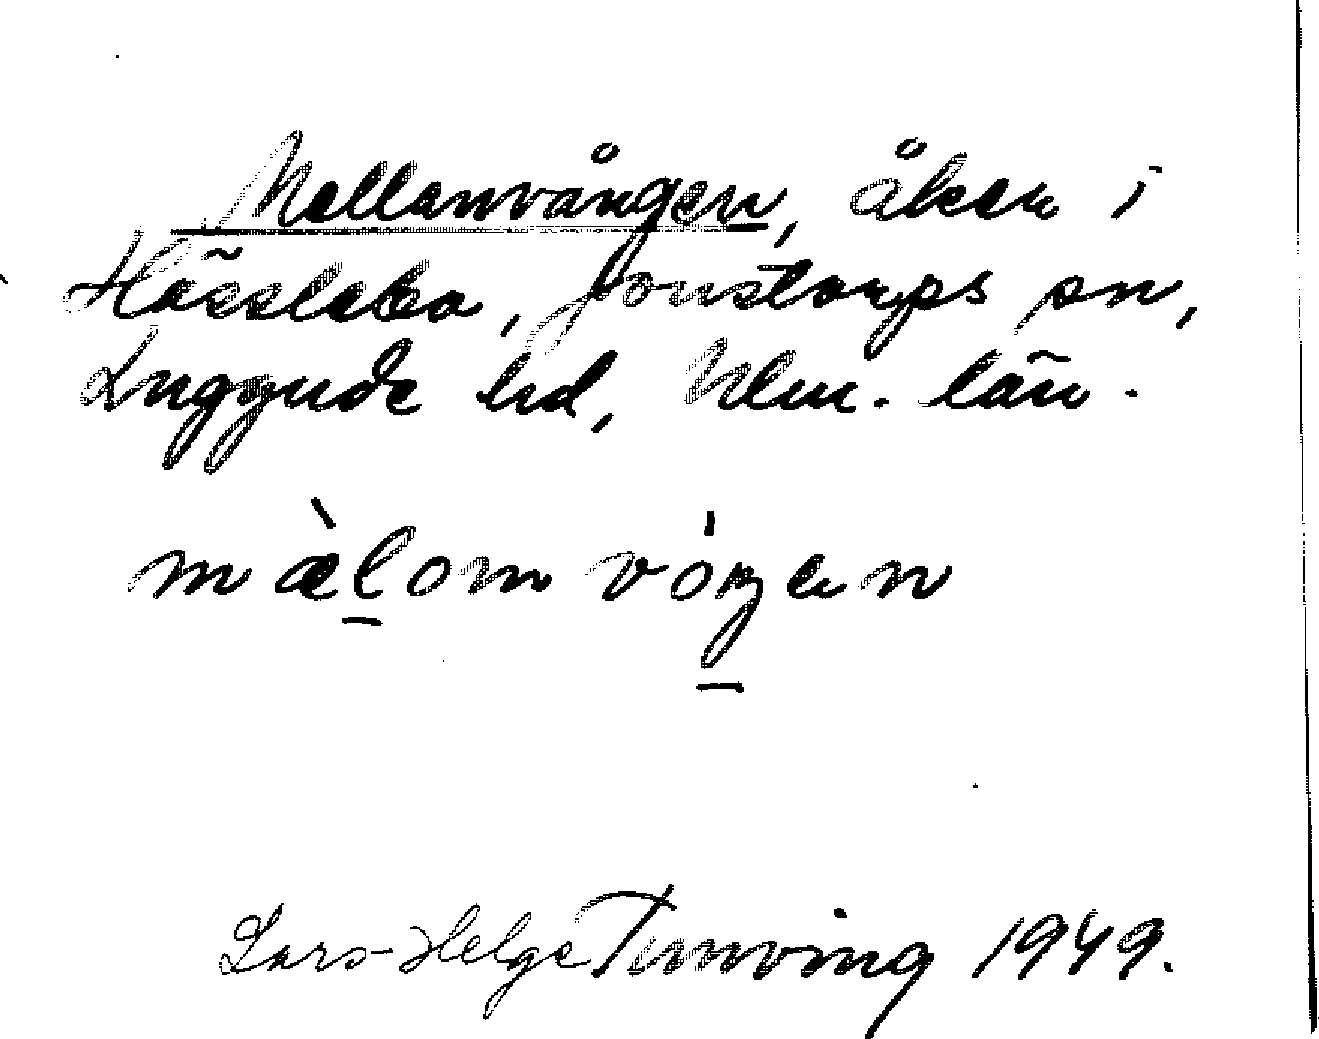 Mellanvången, åker i
Hässlebo, Jonstorps sn,
Luggude hd, Mlm. län.
mæ̀lomvóŋen
Lars-Helge Tunving 1949.